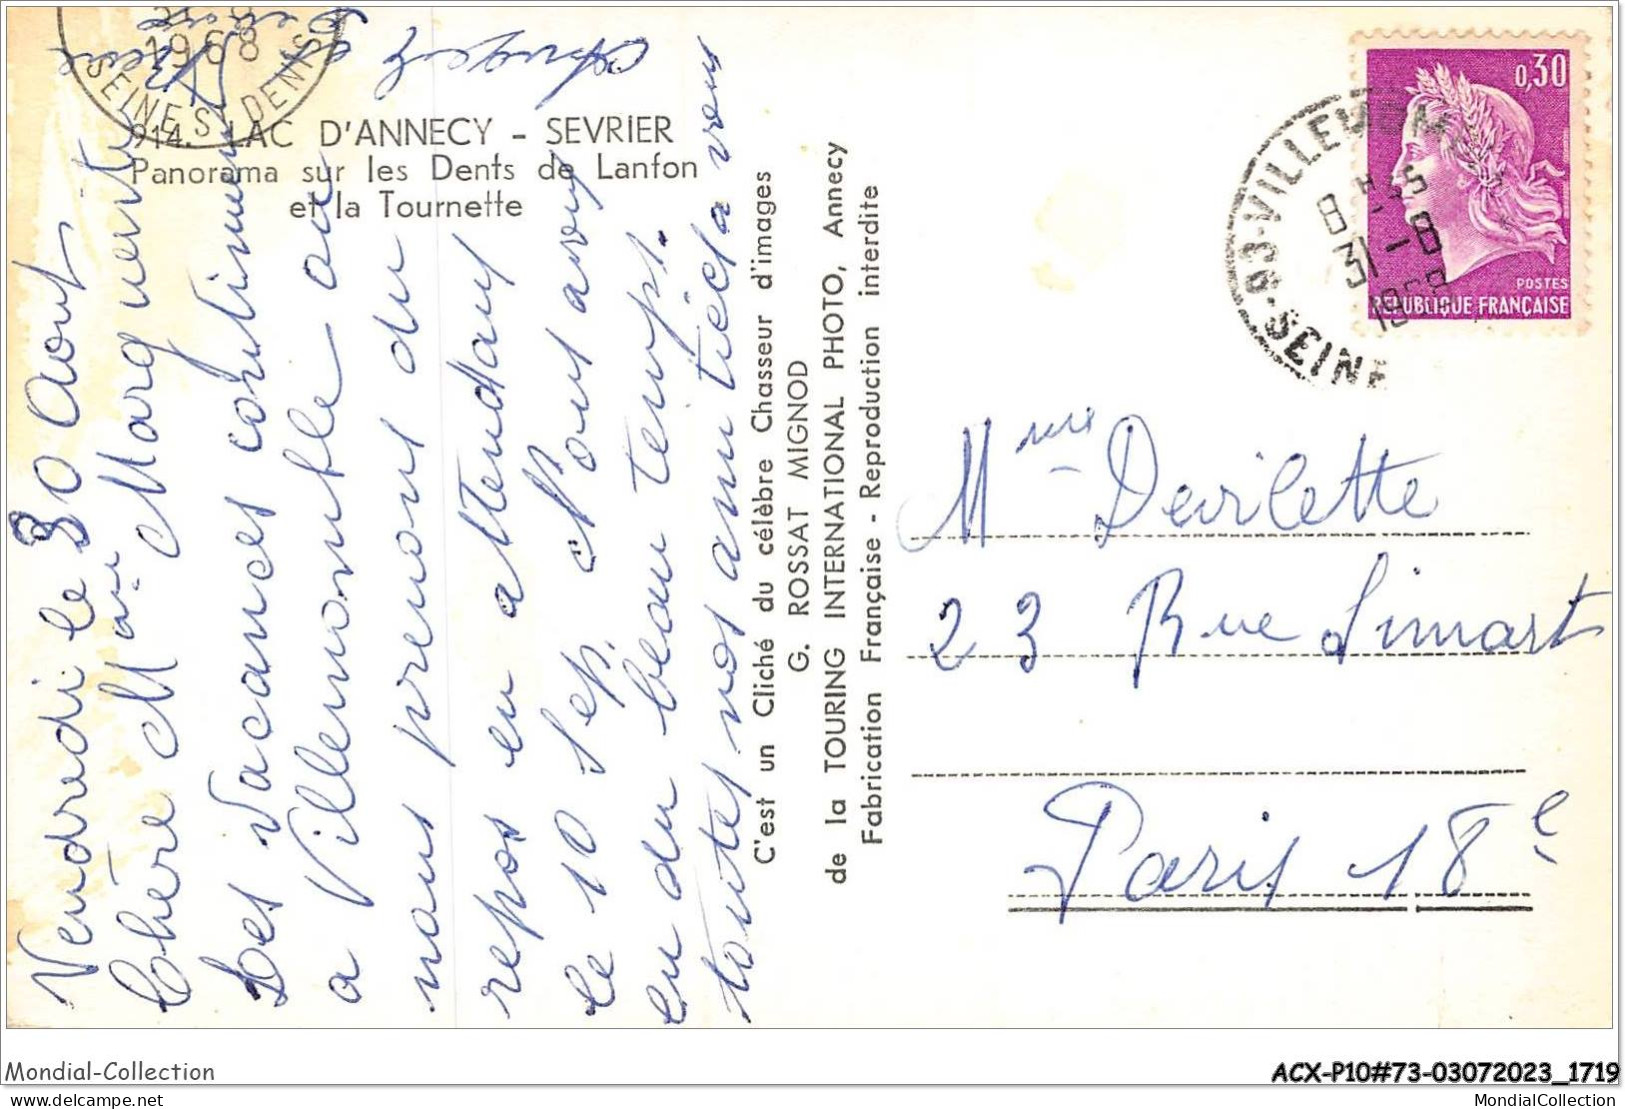 Vendredi le 30 Août
Chère Marguerite
Les Vacances continuent
a Villemomble ou
nous prenons du
repos en attendant
le 10 Sep. Nous avons
eu du beau temps.
toutes nos amitiés a vous
914. LAC D'ANNECY - SEVRIER
Panorama sur les Dents de Lanfon
et la Tournette
1968
SEINE ST DENIS
C'est un Cliché du célèbre Chasseur d'images
G. ROSSAT MIGNOD
de la TOURING INTERNATIONAL PHOTO, Annecy
Fabrication Française - Reproduction interdite
0,30
POSTES
REPUBLIQUE FRANÇAISE
93-VILLEMOM
31-8
1968
SEINE
Mme Devilette
23 Rue Simart
Paris 18e
Mondial-Collection
ACX-P10#73-03072023_1719
delcampe.net
MondialCollection